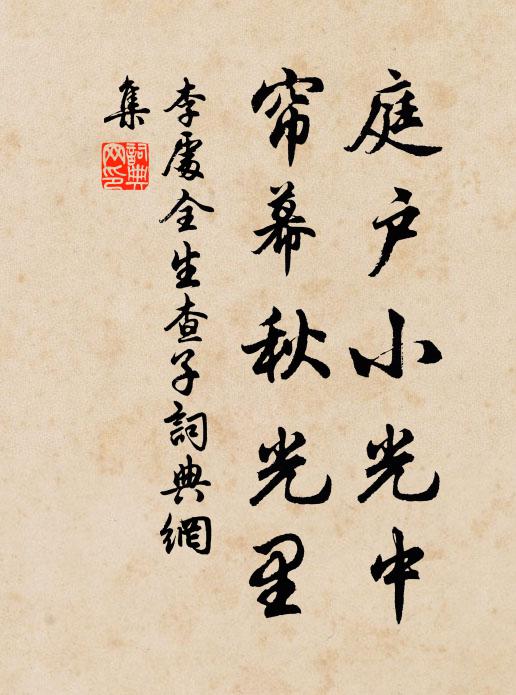 庭户小光中
帘幕秋光里
李處全生查子詞典網
集
詞典
网印